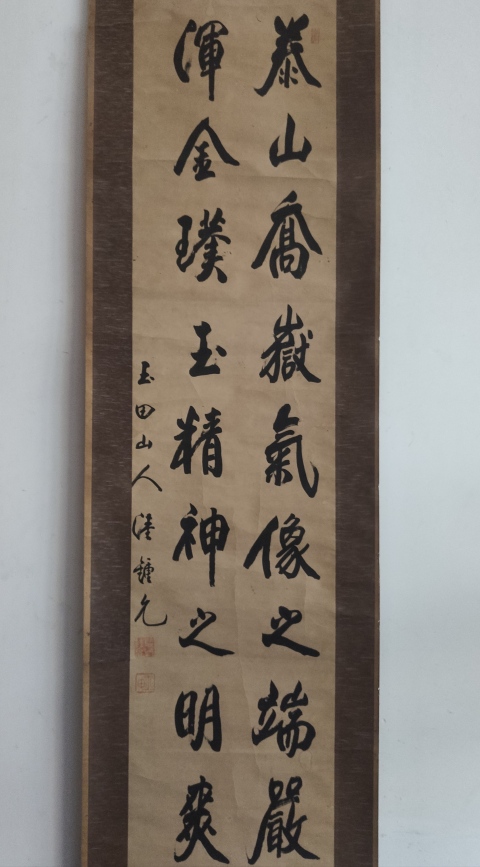 泰山喬嶽氣像之端嚴
渾金璞玉精神之明爽
玉田山人 鍾允